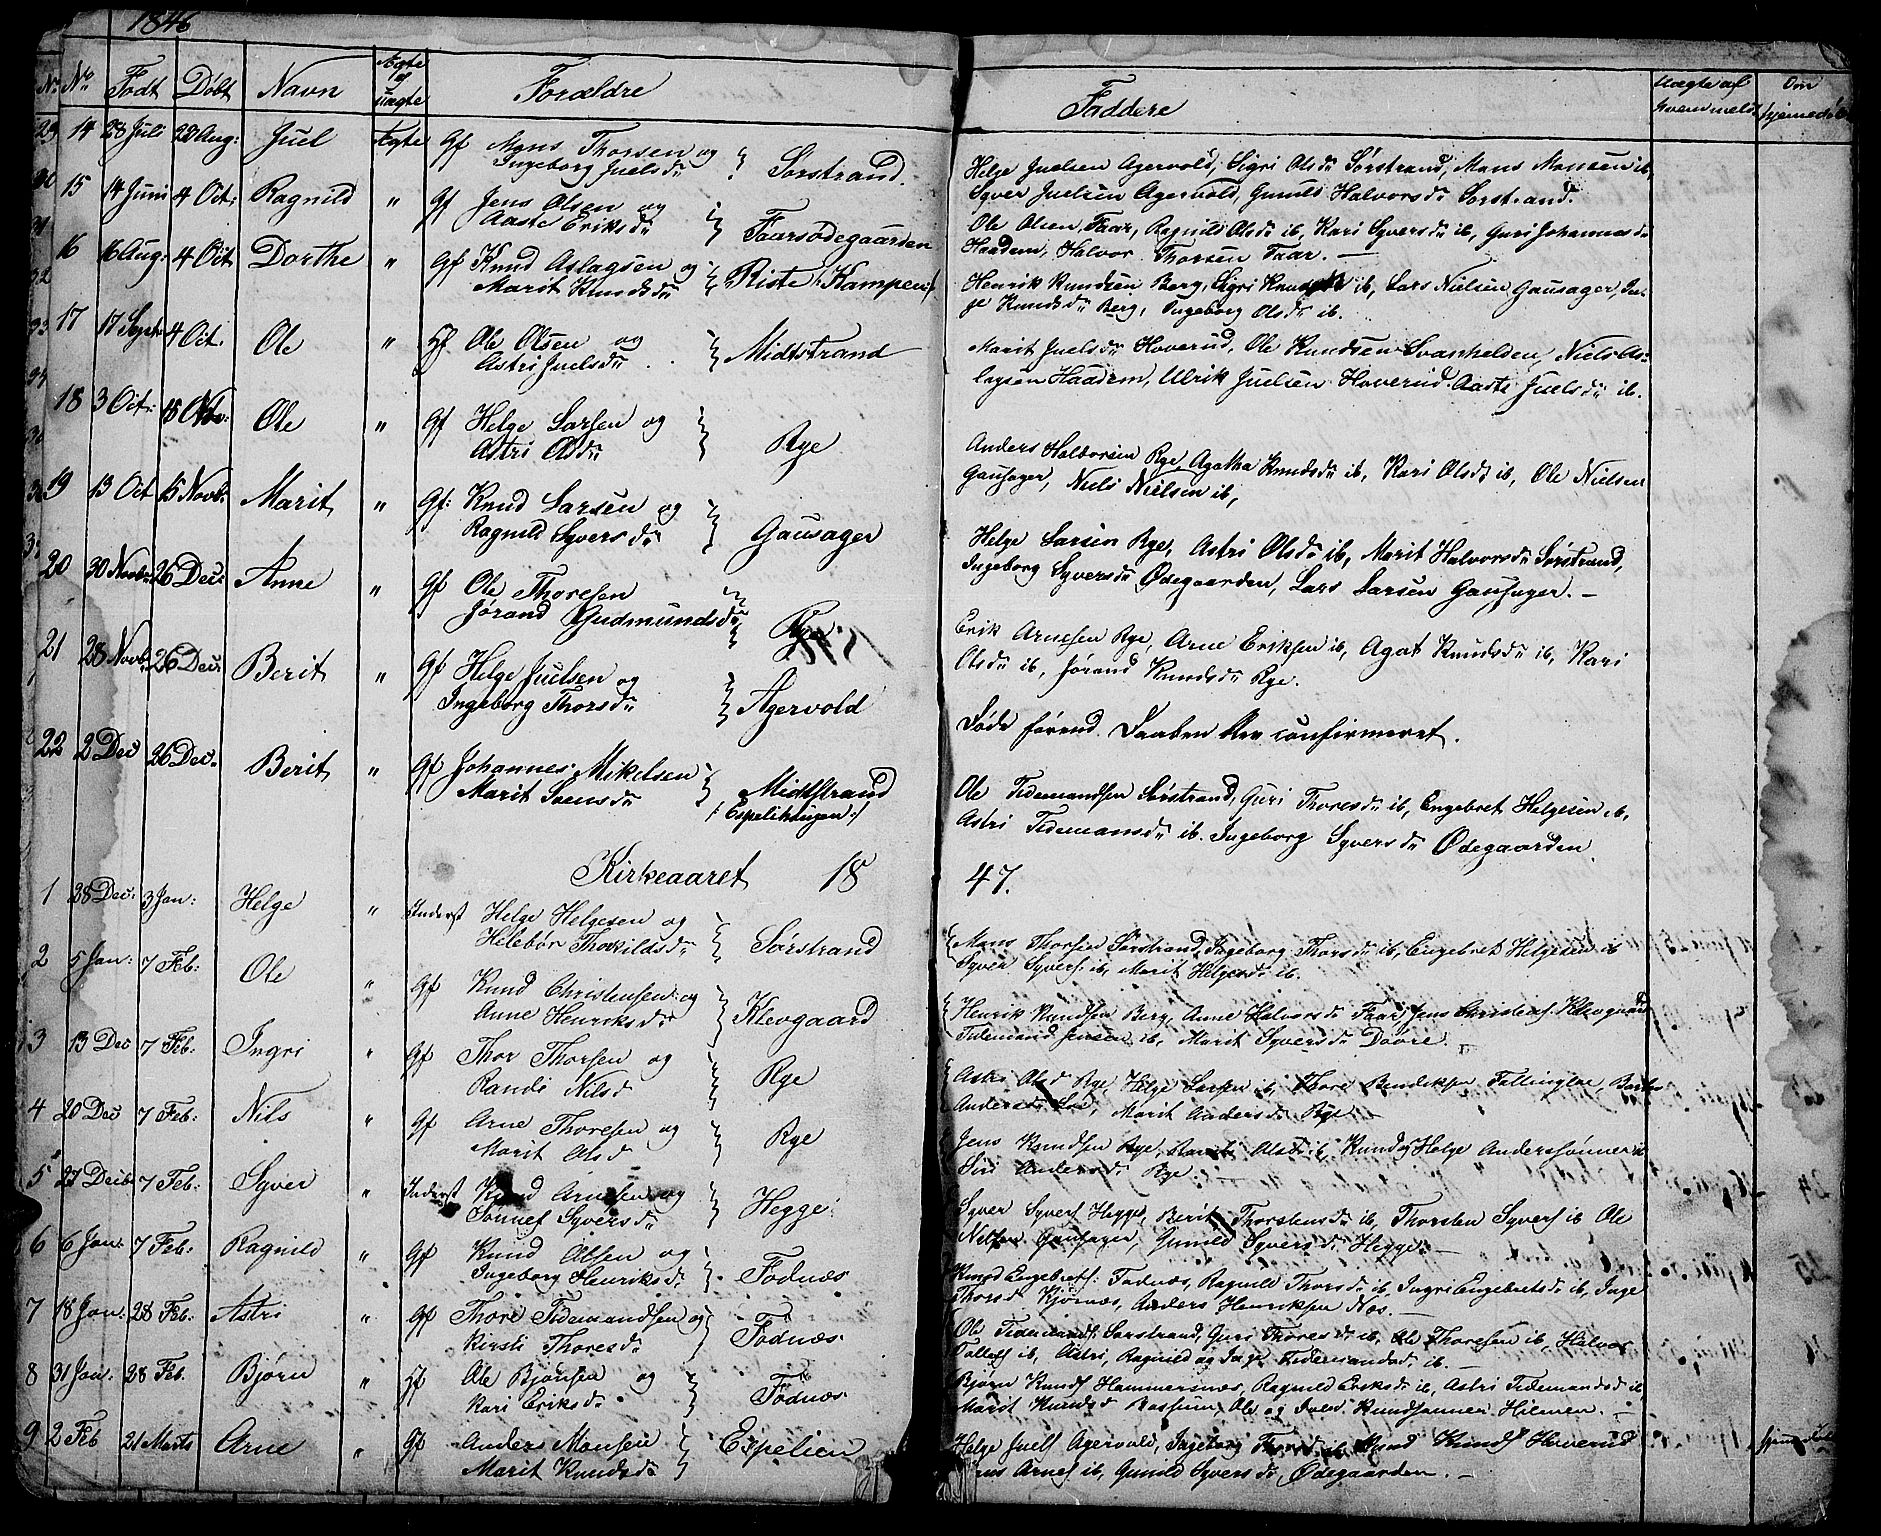 1846
No No Født Døbt Navn Ægte el uægte Forældre Faddere Uægte af hvem meldt Om hjemmedøbt
29 14 28 Juli 22 Aug: Juel Ægte Gf Mons Thorsen og Ingeborg Juelsdr Sørstrand.
Helge Juelsen Agervold, Sigri Olsdr Sørstrand, Mons Monsen ib,
Syver Juelsen Agervold, Gunild Halvorsdr Sørstrand.
30 15 14 Juni 4 Oct: Ragnild " Gf Jens Olsen og Aaste Eriksdr Faarsødegaarden
Ole Olsen Faar, Ragnild Olsdr ib, Kari Syversdr ib, Guri Johannesdr
Haadem, Halvor Thorsen Faar. —
31 16 16 Aug: 4 Oct Dorthe " Gf Knud Aslagsen og Marit Knudsdr Riste (Kampen)
Henrik Knudsen Berg, Sigri ib, Lars Nielsen Gausager, In-
ge Knudsdr Berg, Ingeborg Olsdr ib.
32 17 17 Sept: 4 Oct. Ole " Gf Ole Olsen og Astri Juelsdr Midtstrand
Marit Juelsdr Hoverud, Ole Knudsen Svanhelden, Niels As-
lagsen Haadem, Ulrik Juelsen Hoverud. Aaste Juelsdr ib.
18 3 Oct: 15 Nov: Ole " Gf Helge Larsen og Astri Olsdr Rye
Anders Halvorsen Rye, Agatha Knudsdr ib, Kari Olsdr ib, Ole Nielsen
Gausager, Niels Nielsen ib,
19 13 Oct 15 Novb: Marit " Gf: Knud Larsen og Ragnild Syversdr Gausager
Helge Larsen Rye, Astri Olsdr ib, Marit Halvorsdr Sørstrand,
Ingeborg Syversdr Ødegaarden, Lars Larsen Gausager. —
20 30 Novb: 26 Dec: Anne " Gf Ole Thoresen Jørand Gudmundsdr Rye
Erik Arnesen Rye, Arne Eriksen ib, Agat Knudsdr ib, Kari
Olsdr ib, Jørand Knudsdr Rye.
21 28 Novb: 26 Dec: Berit " Gf Helge Juelsen og Ingeborg Thorsdr Agervold
Døde førend Daaben blev confirmeret.
22 2 Dec 26 Dec. Berit " Gf Johannes Mikelsen Marit Svensdr Midtstrand
(: Espelihaugen :)
Ole Tidemandsen Sørstrand, Guri Thoresdr ib, Engebret Helgesen ib,
Astri Tidemansdr ib. Ingeborg Syversdr Ødegaarden.
Kirkeaaret 18 47.
1 28 Dec: 3 Jan: Helge " Inderst Helge Helgesen og Hilebør Thorkildsdr Sørstrand
Mons Thorsen Sørstrand, Ingeborg Thorsdr ib, Engebret Helgesen ib
Syver Syvers. ib, Marit Helgesdr ib.
2 5 Jan: 7 Feb: Ole " Gf Knud Christensen og Anne Henriksdr Klevgaard
Henrik Knudsen Berg, Anne Halvorsdr Faar, Jens Christens. Klevgaard
Tidemand Jensen ib, Marit Syversdr Døvre.
3 13 Dec 7 Feb: Ingri " Gf Thor Thorsen og Randi Nilsd Rye
Astri Olsd Rye, Helge Larsen ib, Thore Bendiksen
Andersdr Marit Andersdr Rye —
4 20 Dec 7 Feb: Nils " Gf Arne Thoresen og Marit Olsd Rye
Jens Knudsen Rye, Olsd ib Knud og Helge Anderssønner ib
Siri Andersdr Rye.
5 27 Decb: 7 Feb: Syver " Inderst Knud Arnesen og Sønnef Syversdr Hegge
Syver Syvers. Hegge, Berit Thorstensdr ib, Thorsten Syvers. ib Ole
Nilsen Gausager, Gunild Syversdr Hegge. —
6 6 Jan: 7 Feb: Ragnild " Gf Knud Olsen og Ingeborg Henriksdr Fodnæs
Knud Engebrets: Fodnæs, Ragnild Thorsdr ib, Ingri Engebretsdr ib, Inge
Thorsdr Kjørnæs, Anders Henriksen Næs. —
7 18 Jan: 28 Feb: Astri " Gf Thore Tidemandsen og Kirsti Thoresdr Fodnæs
Ole Tidemands: Sørstrand, Guri Thoresdr ib, Ole Thoresen ib, Halvor
ib, Astri, Ragnild og Inge Tidemandsdr ib. —
8 31 Jan: 28 Feb. Bjørn " Gf Ole Bjørnsen og Kari Eriksdr Fodnæs
Bjørn Knuds. Hammersnæs, Ragnild Eriksdr ib, Astri Tidemandsd ib
Marit Knudsd Ole og Iver Knudsønner Hilmen. —
9 2 Feb 21 Marts Arne " Gf Anders Monsen Marit Knudsdr Espelien
Helge Juels. Agervold, Ingeborg Thorsdr ib Knud Knuds. Hoverud
Arnes. ib, Gunild Syversdr Ødegaarden. —